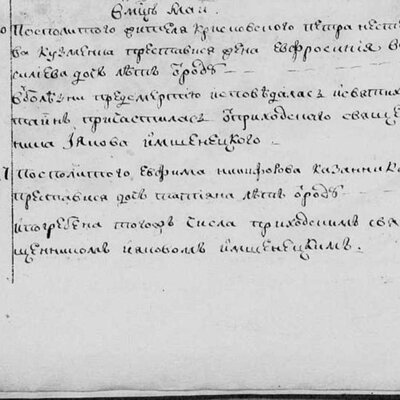 Вмцѣ Маи
Посполитого жителя Крисковского Петра нест
ва Кузменна преставися жена Евфросиния ва
силіева дочь лѣтъ
з болѣзни пред смертию исповѣдалася и святихъ
таинъ причастилася з приходского свяще
ника Іякова Имшенецкого.
Посполитого, Евфима никифорова казанника
преставися дочь татіяна лѣтъ
и погребена тогожъ числа приходскимъ свя
щенникомъ Іяковомъ Имшенецкимъ.